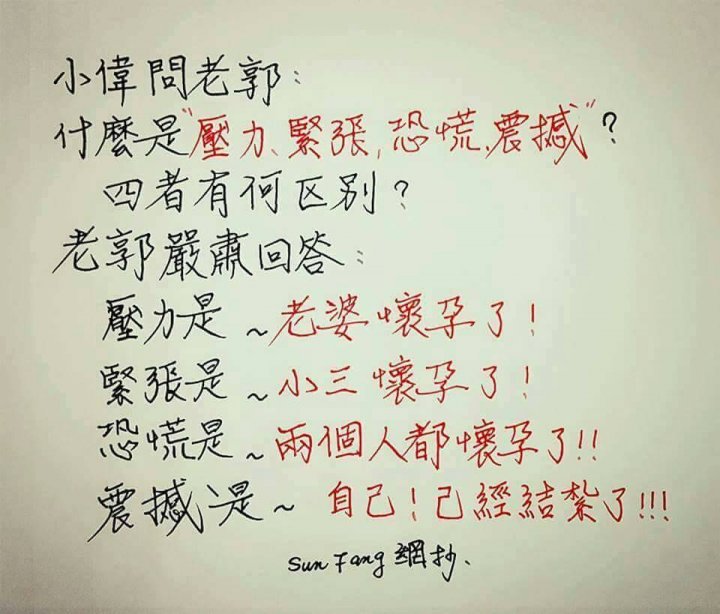 小偉問老郭:
什麼是"壓力、緊張,恐慌、震撼"?
四者有何区别?
老郭嚴肅回答:
壓力是~老婆懷孕了!
緊張是~小三懷孕了!
恐慌是~兩個人都懷孕了!!
震撼是~自己!已經結紮了!!!
Sun Fang 網抄.